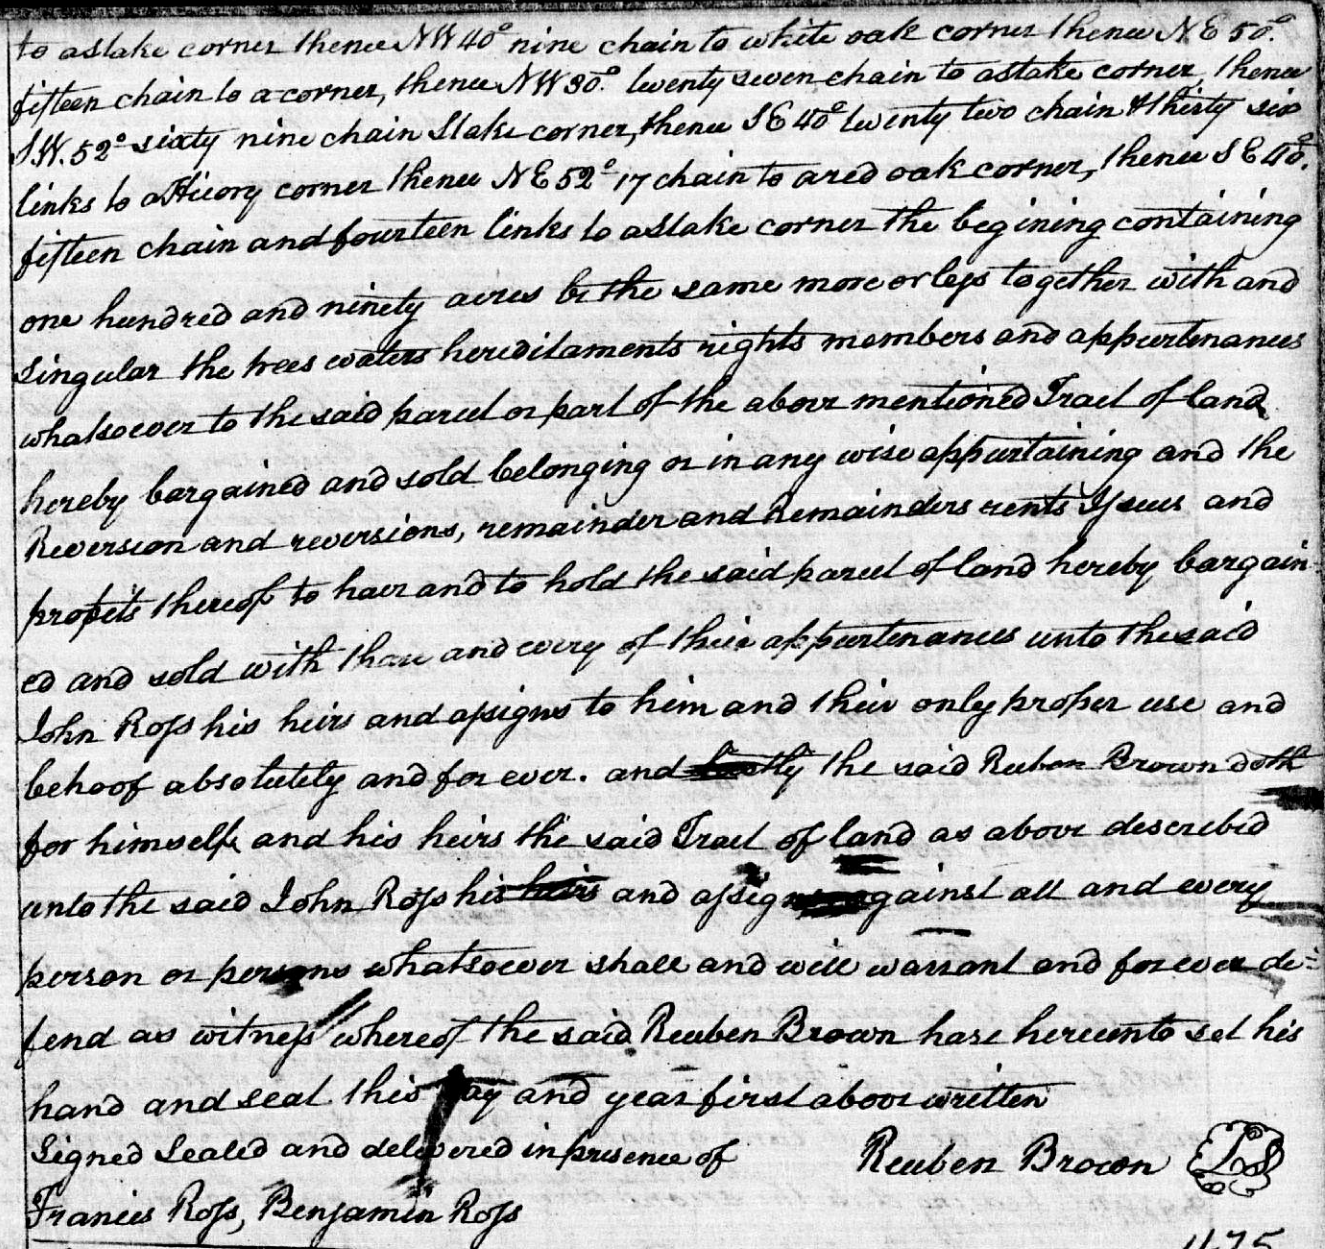 to a stake corner thence NW 40° nine chain to white oak corner thence N E 50°.
fifteen chain to a corner, thence NW 30°. twenty seven chain to a stake corner, thence
S.W. 52° sixty nine chain Stake corner, thence S E 40° twenty two chain & thirty six
links to a Hicory corner thence N E 52° 17 chain to a red oak corner, thence S E 40°.
fifteen chain and fourteen links to a Stake corner the begining containing
one hundred and ninety acres be the same more or less together with and
singular the trees waters hereditaments rights members and appurtenances
whatsoever to the said parcel or part of the above mentioned Tract of land
hereby bargained and sold belonging or in any wise appurtaining and the
Reversion and reversions, remainder and Remainders rents Issues and
profits thereof to have and to hold the said parcel of land hereby bargain-
ed and sold with and every of their appurtenances unto the said
John Ross his heirs and assigns to him and their only proper use and
behoof absolutely and for ever. and the said Reuben Brown doth
for himself, and his heirs the said Tract of land as above described
unto the said John Ross his heirs and assigns against all and every
person or persons whatsoever shall and will warrant and for ever de=
fend as witness whereof the said Reuben Brown hase hereunto set his
hand and seal this day and year first above written
Signed Sealed and delivered in presence of Reuben Brown LS
Francis Ross, Benjamin Ross